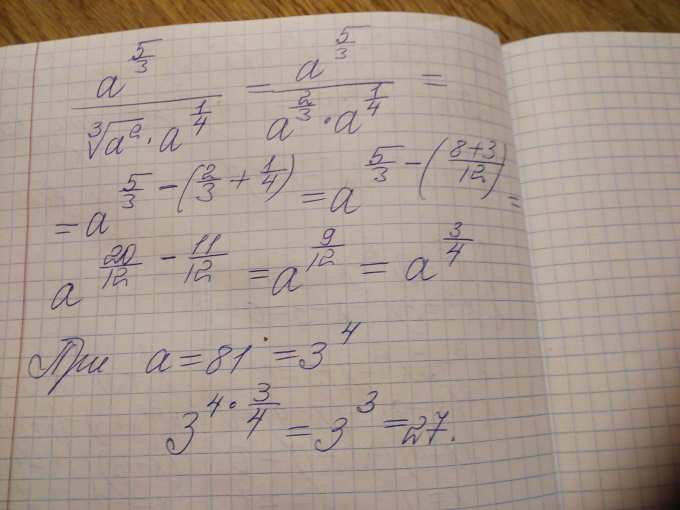 a^(5/3) / (∛a² · a^(1/4)) = a^(5/3) / (a^(2/3) · a^(1/4)) =
= a^(5/3 − (2/3 + 1/4)) = a^(5/3 − (8+3)/12) =
a^(20/12 − 11/12) = a^(9/12) = a^(3/4)
При a = 81 = 3^4
3^(4 · 3/4) = 3^3 = 27.